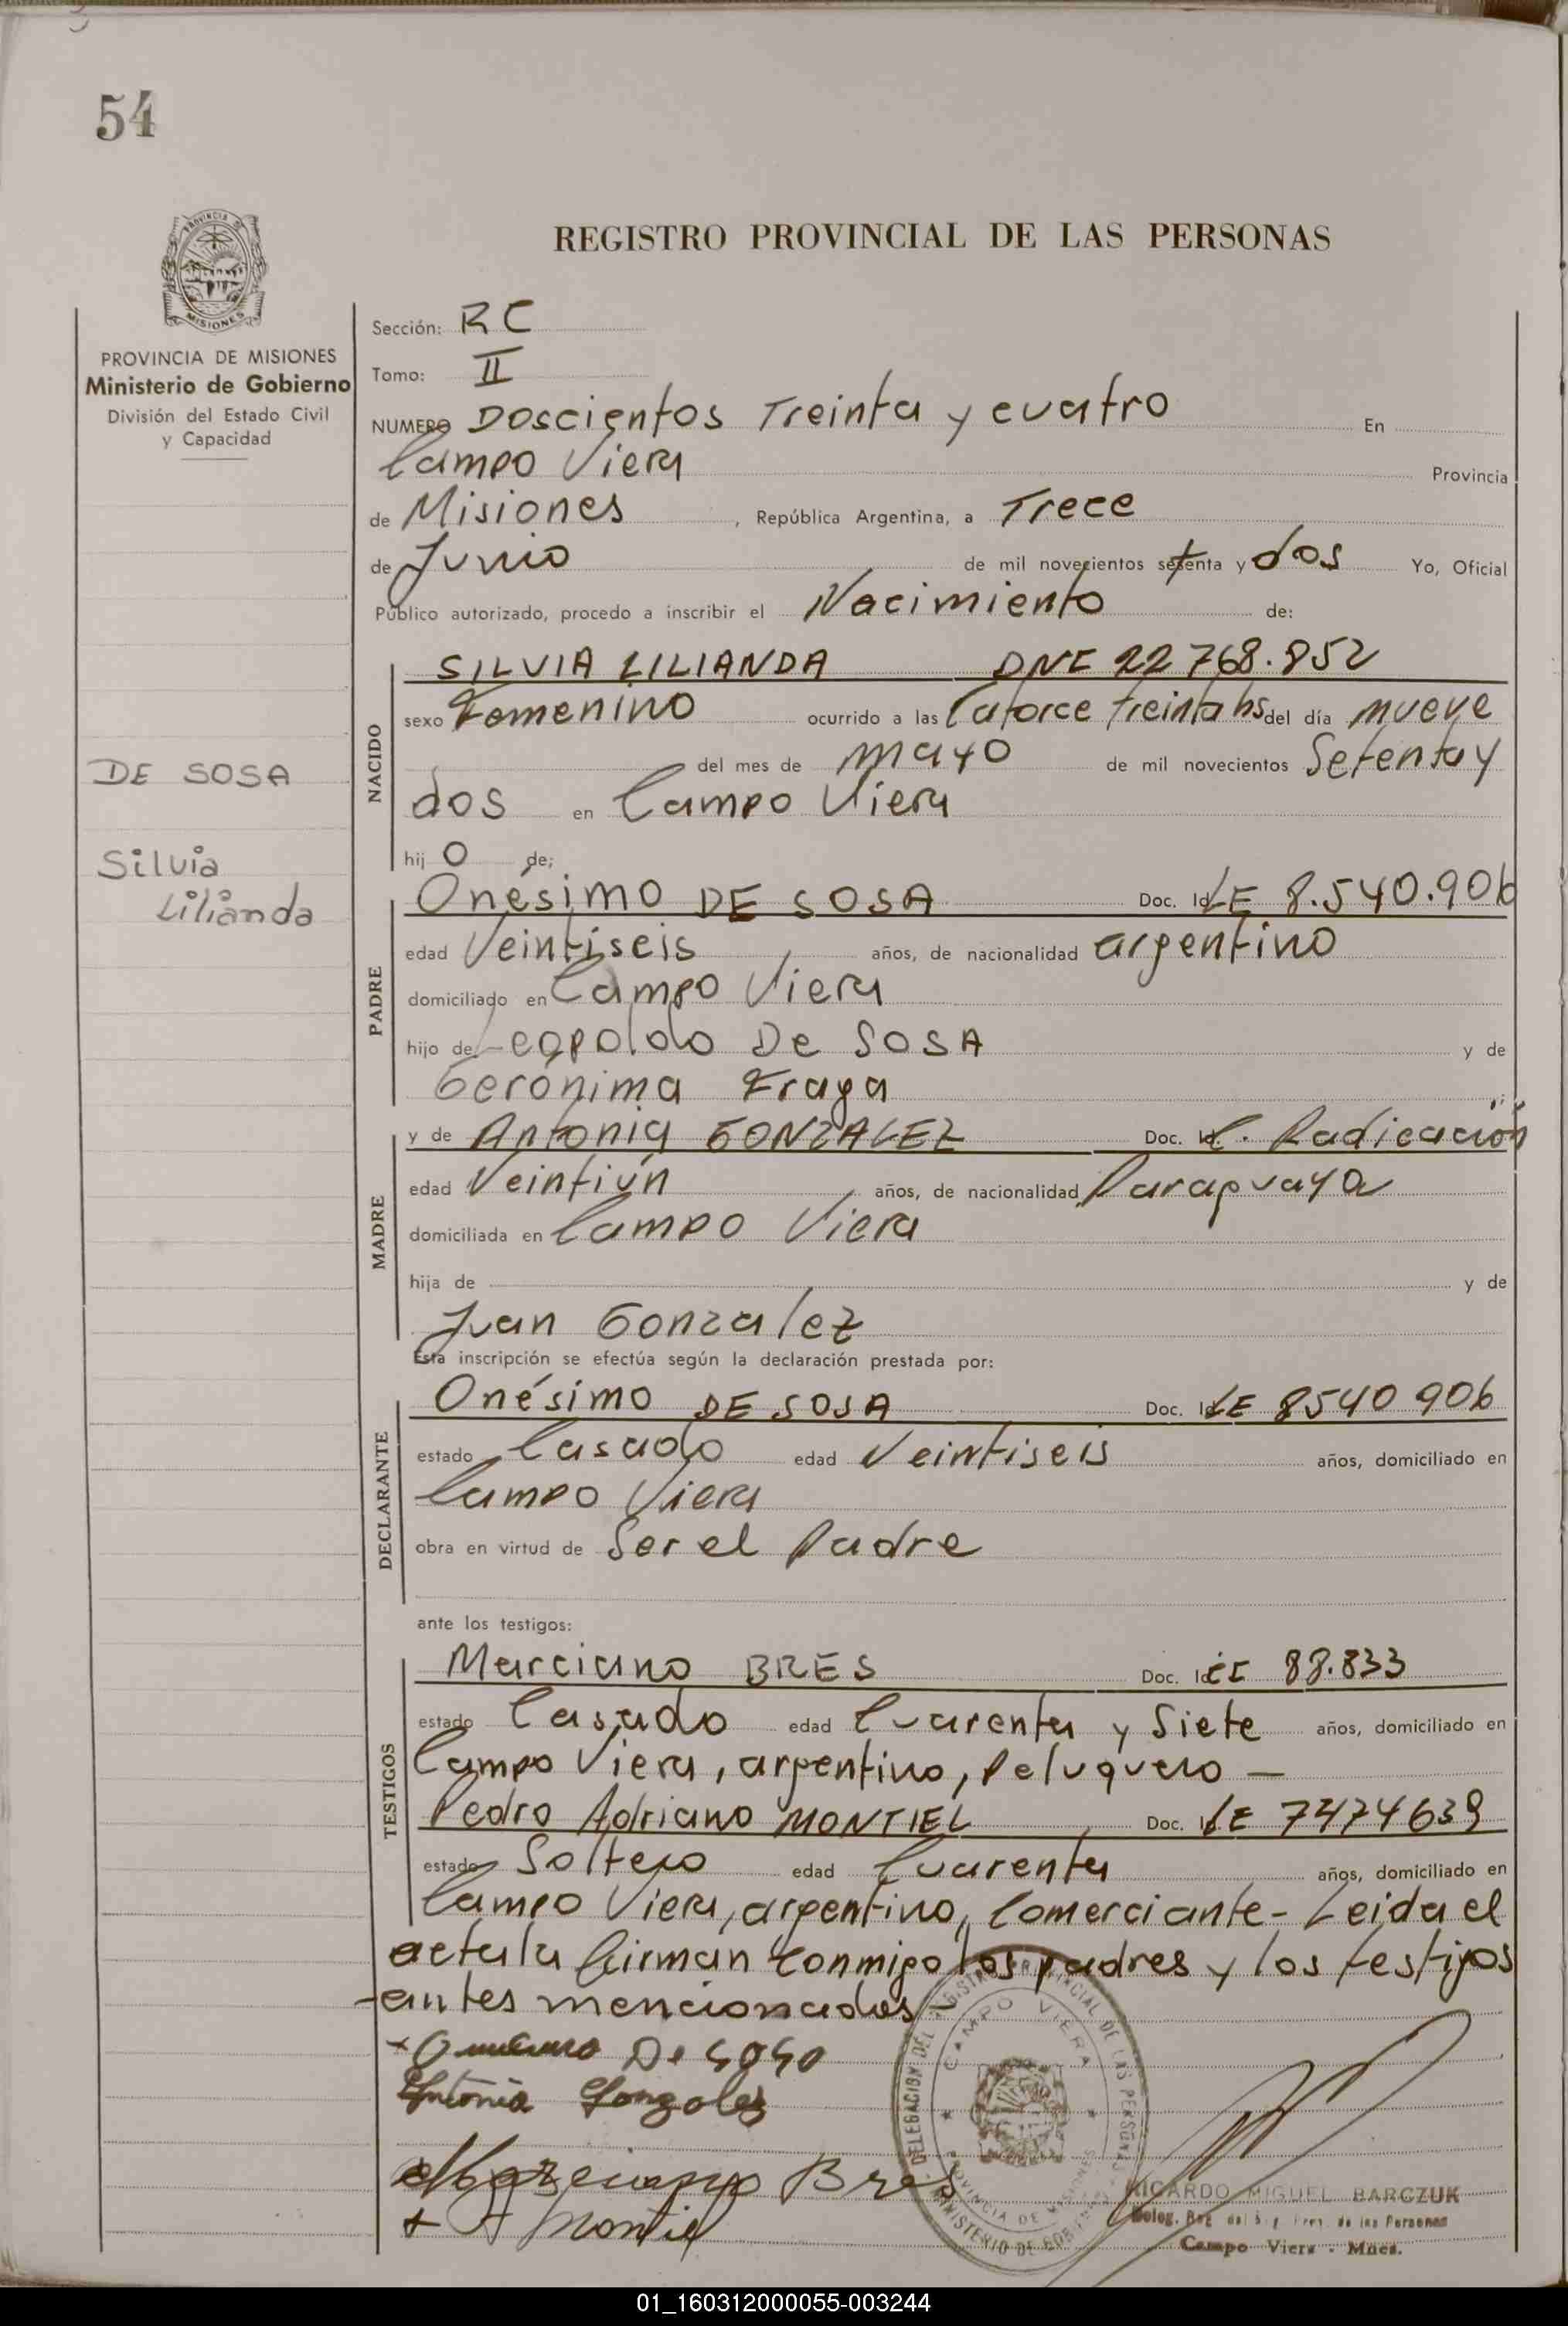 54
PROVINCIA DE MISIONES
Ministerio de Gobierno
División del Estado Civil
y Capacidad
DE SOSA
Silvia
Lilianda
REGISTRO PROVINCIAL DE LAS PERSONAS
Sección: RC
Tomo: II
NUMERO Doscientos Treinta y cuatro En
Campo Viera Provincia
de Misiones, República Argentina, a Trece
de Junio de mil novecientos setenta y dos Yo, Oficial
Público autorizado, procedo a inscribir el Nacimiento de:
NACIDO
SILVIA LILIANDA DNI 22 768.852
sexo Femenino ocurrido a las Catorce treinta hs del día nueve
del mes de mayo de mil novecientos Setenta y
dos en Campo Viera
hij o de:
PADRE
Onésimo DE SOSA Doc. Id LE 8.540.906
edad Veintiseis años, de nacionalidad argentino
domiciliado en Campo Viera
hijo de Leopoldo De SOSA y de
Gerónima Fraga
MADRE
y de Antonia GONZALEZ Doc. Id C. Radicación
edad Veintiún años, de nacionalidad Paraguaya
domiciliada en Campo Viera
hija de y de
Juan Gonzalez
Esta inscripción se efectúa según la declaración prestada por:
DECLARANTE
Onésimo DE SOSA Doc. Id LE 8540 906
estado Casado edad Veintiseis años, domiciliado en
Campo Viera
obra en virtud de Ser el Padre
ante los testigos:
TESTIGOS
Marciano BRES Doc. Id CI 88.833
estado Casado edad Cuarenta y Siete años, domiciliado en
Campo Viera, argentino, Peluquero —
Pedro Adriano MONTIEL Doc. Id LE 7474639
estado Soltero edad Cuarenta años, domiciliado en
Campo Viera, argentino, Comerciante - Leida el
acta la firman conmigo los padres y los testigos
antes mencionados -
De Soso
Antonia Gonzales
Marciano Bres
Montiel
DELEGACION DEL REGISTRO PROVINCIAL DE LAS PERSONAS
CAMPO VIERA
PROVINCIA DE MISIONES
MINISTERIO DE GOBIERNO
RICARDO MIGUEL BARCZUK
Deleg. de las Personas
Campo Viera - Mnes.
01_160312000055-003244